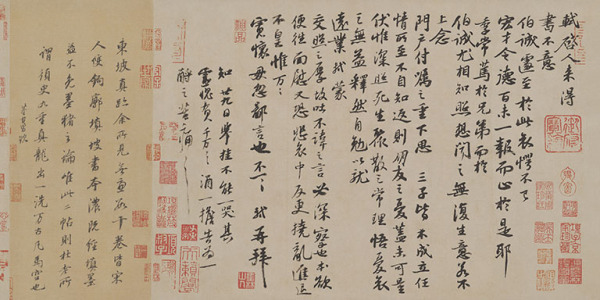 軾啟人來得
書不意
伯誠遽至於此哀愕不已
宏才令德百未一報而止於是耶
季常篤於兄弟而於
伯誠尤相知照想聞之無復生意若不
上念
門戶付囑之重下思三子皆不成立任
情所至不自知返則朋友之憂蓋未可量
伏惟深照死生聚散之常理悟憂哀
之無益釋然自勉以就
遠業軾蒙
交照之厚故吐不諱之言必深察也本欲
便往面慰又恐悲哀中反更撓亂進退
不皇惟萬萬
寬懷毋忽鄙言也不一一軾再拜
知廿九日舉掛不能一哭其
靈愧負千萬千萬酒一擔告為一
酹之苦痛苦痛
東坡真跡余所見無慮數十卷皆宋
人雙鉤廓填坡書本濃既經填墨
益不免墨豬之論唯此二帖則杜老所
謂須臾九重真龍出一洗萬古凡馬空也
董其昌題